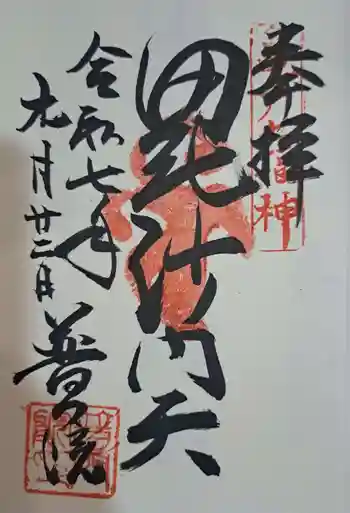 奉拝
毘沙門天
令和七年
九月廿二日
普門院